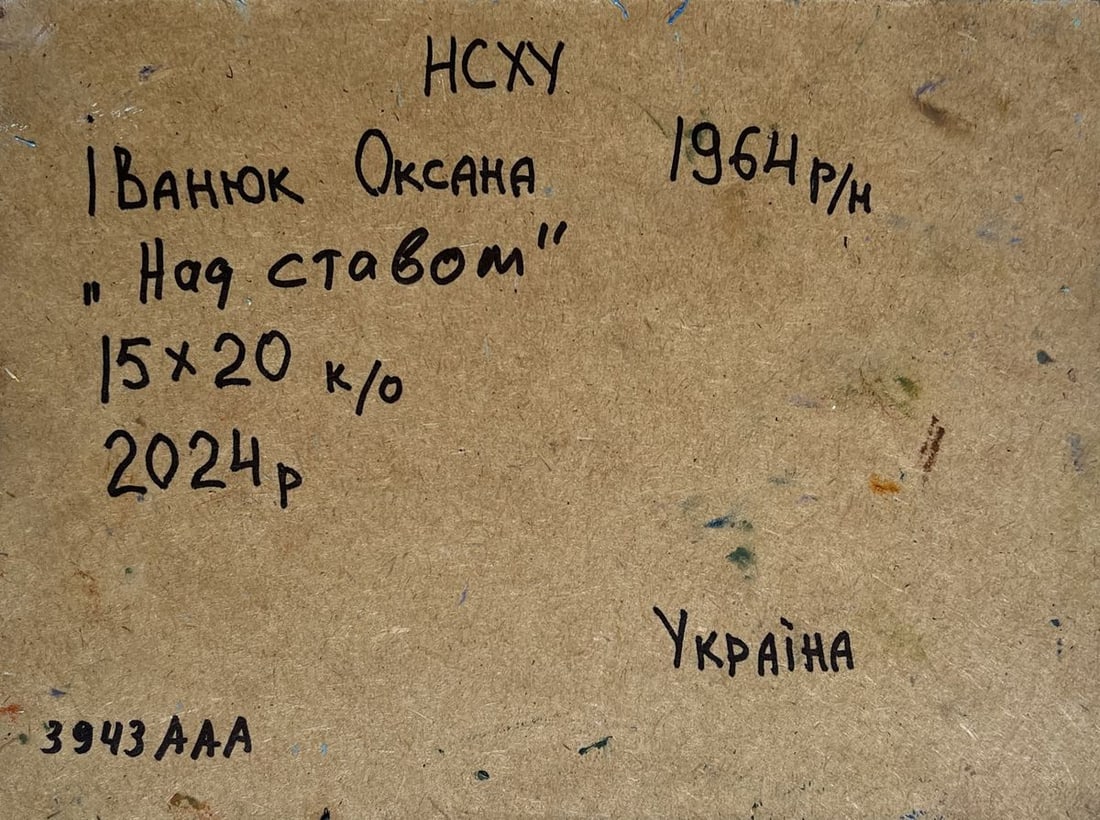 НСХУ
Іванюк Оксана 1964 р/н
„Над ставом"
15x20 к/о
2024р
Україна
3943AAA